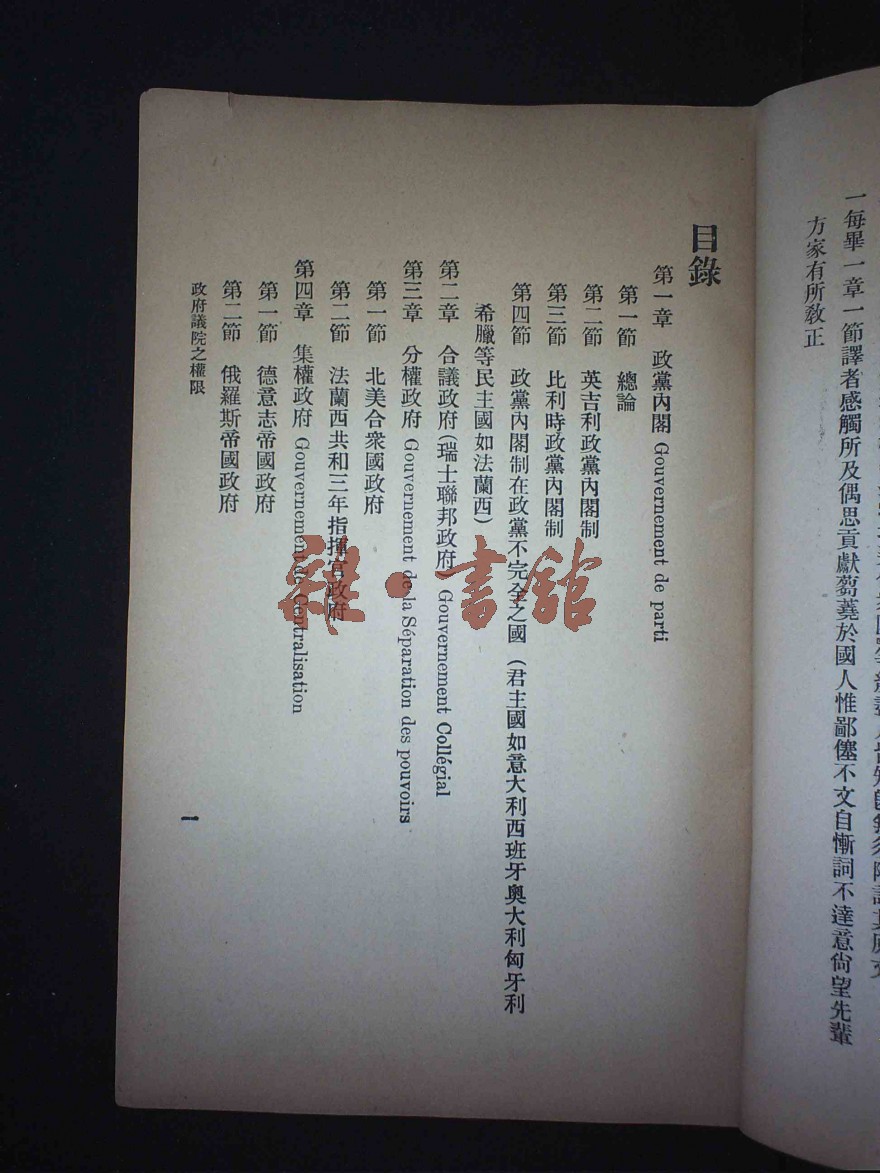 一每畢一章一節譯者感觸所及偶思貢獻蒭蕘於國人惟鄙僿不文自慚詞不達意尙望先輩
方家有所教正
目錄
第一章 政黨內閣 Gouvernement de parti
第一節 總論
第二節 英吉利政黨內閣制
第三節 比利時政黨內閣制
第四節 政黨內閣制在政黨不完全之國(君主國如意大利西班牙奧大利匈牙利
希臘等民主國如法蘭西)
第二章 合議政府(瑞士聯邦政府) Gouvernement Collégial
第三章 分權政府 Gouvernement de la Séparation des pouvoirs
第一節 北美合衆國政府
第二節 法蘭西共和三年指揮官政府
第四章 集權政府 Gouvernement de Centralisation
第一節 德意志帝國政府
第二節 俄羅斯帝國政府
政府議院之權限
一
雜·書館